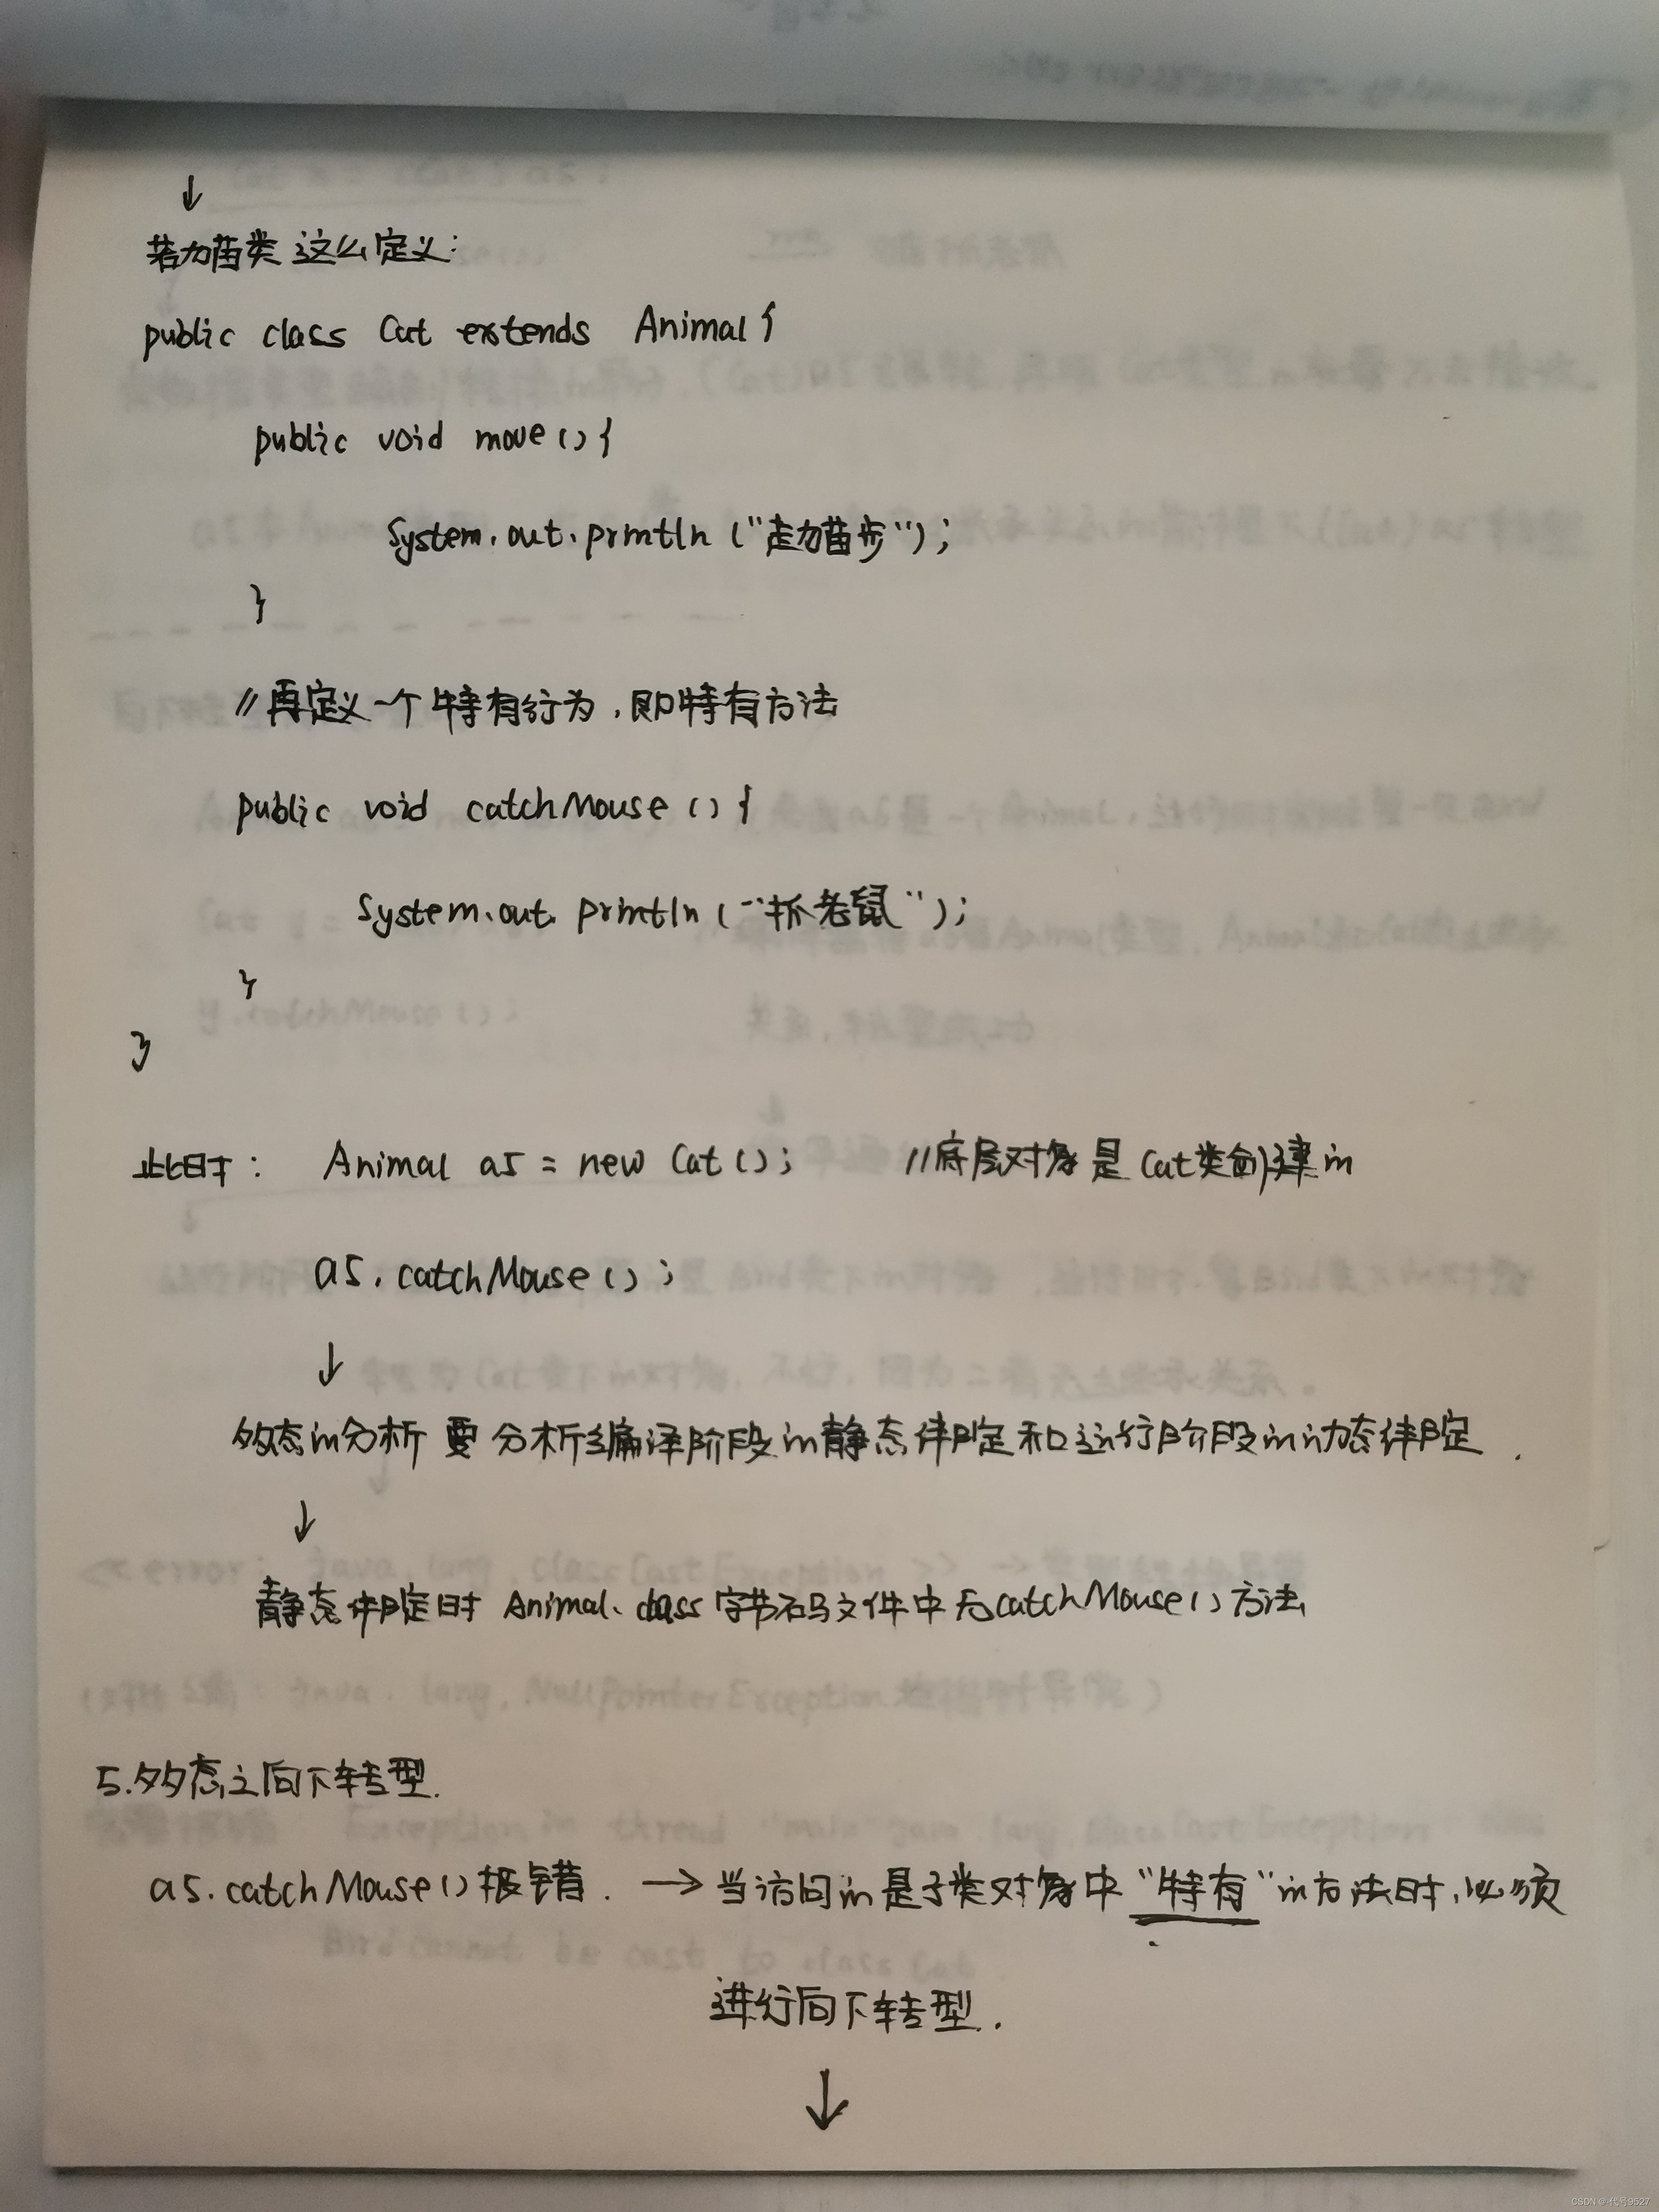 ↓
若猫类这么定义:
public class Cat extends Animal{
public void move(){
System.out.println("走猫步");
}
//再定义一个特有行为,即特有方法
public void catchMouse(){
System.out.println("抓老鼠");
}
}
此时: Animal a5 = new Cat(); //底层对象是Cat类创建的
a5.catchMouse();
↓
多态的分析要分析编译阶段的静态绑定和运行阶段的动态绑定.
↓
静态绑定时Animal.class字节码文件中无catchMouse()方法
5.多态之向下转型.
a5.catchMouse()报错. → 当访问的是子类对象中"特有"的方法时,必须
进行向下转型.
↓
CSDN @代号9527